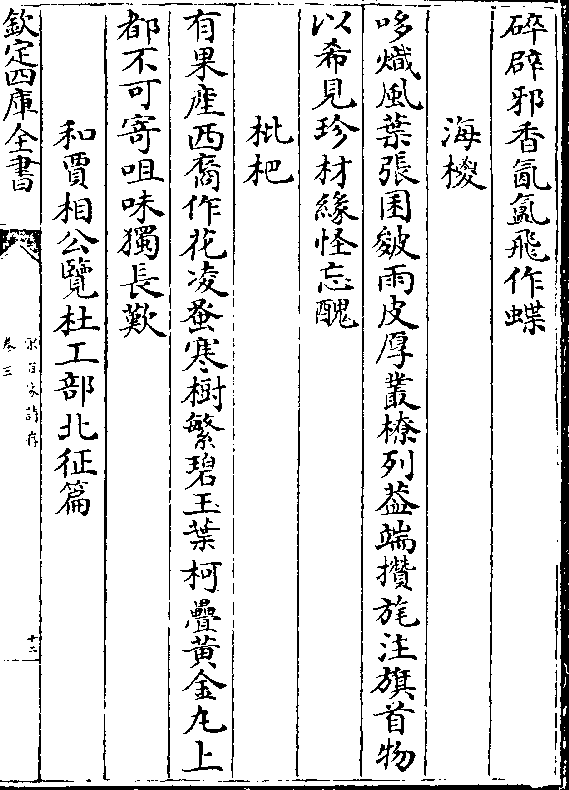 碎辟邪香氤氳飛作蝶
海椶
哆熾風葉張囷皴雨皮厚叢橑列葢端攢旄注旗首物
以希見珍材緣怪忘醜
枇杷
有果産西裔作花凌蚤寒樹繁碧玉葉柯疊黄金丸上
都不可寄咀味獨長歎
和賈相公覽杜工部北征篇
欽定四庫全書
宋百家詩存
卷三
十二